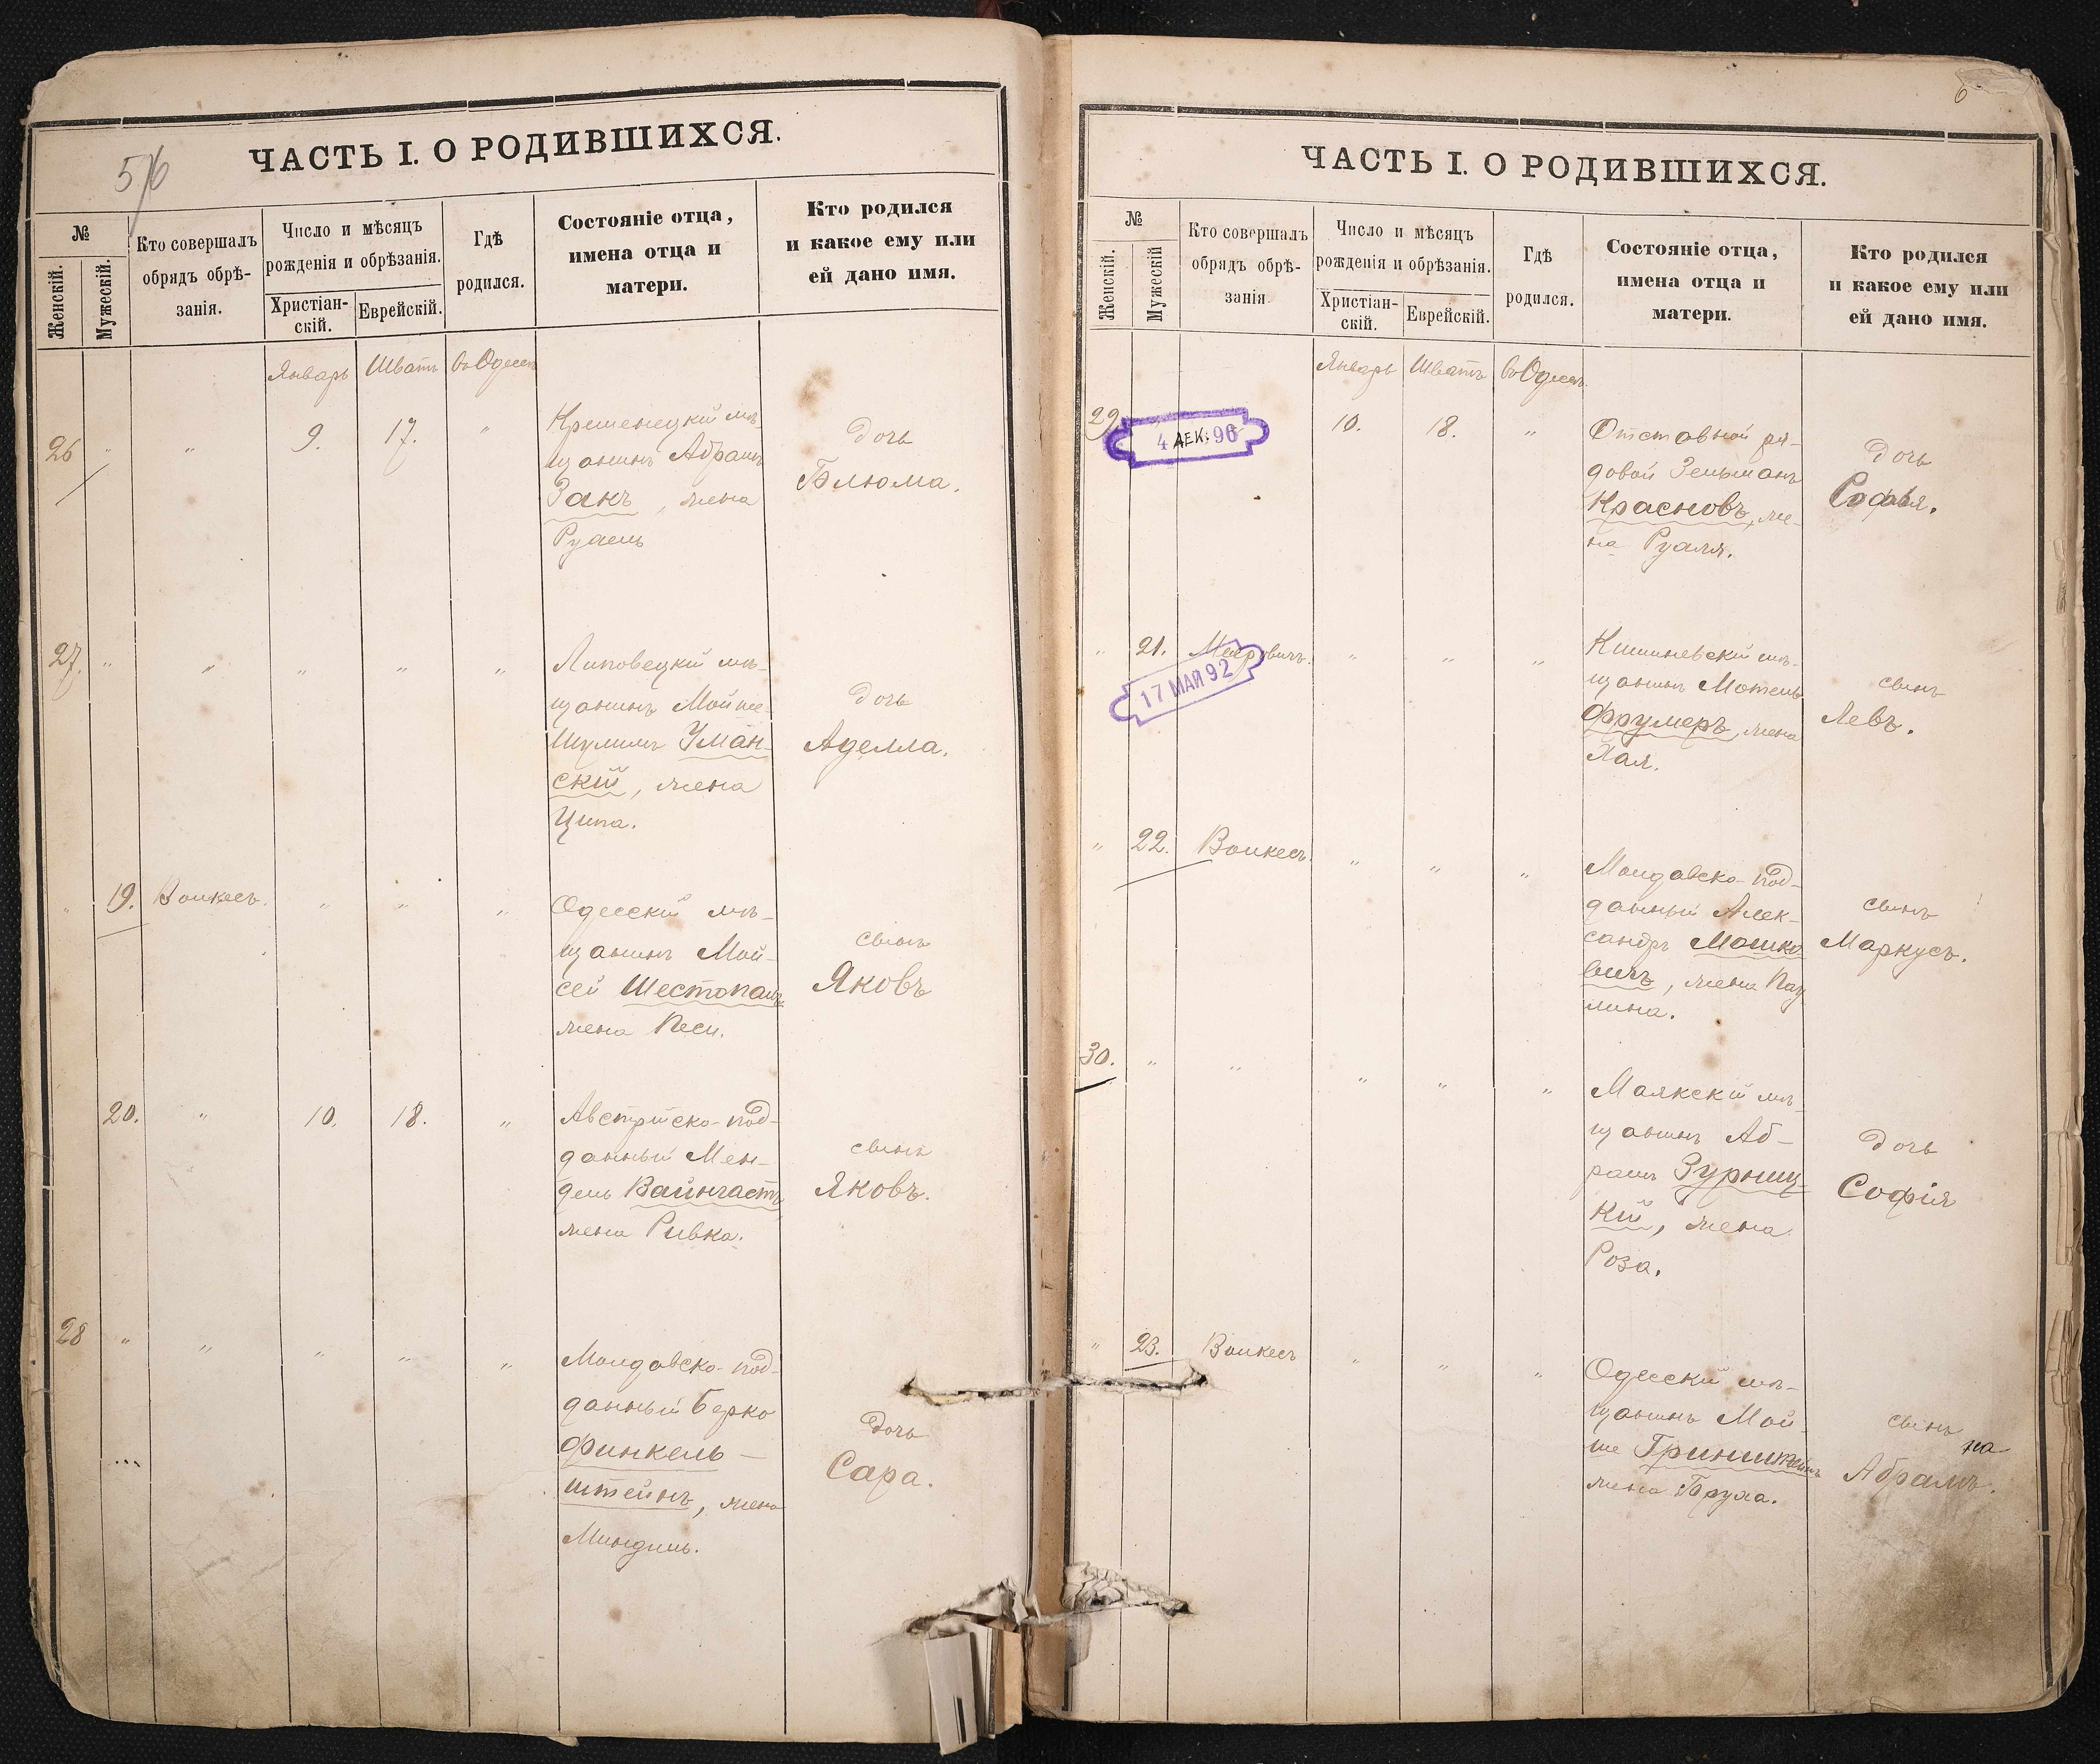 5/6
ЧАСТЬ I. О РОДИВШИХСЯ.
№
Женскій.
Мужескій.
Кто совершалъ
обрядъ обрѣ-
занія.
Число и мѣсяцъ
рожденія и обрѣзанія.
Христіан-
скій.
Еврейскій.
Гдѣ
родился.
Состояніе отца,
имена отца и
матери.
Кто родился
и какое ему или
ей дано имя.
Январь Шватъ въ Одессѣ
26 " " 9. 17. "
Кременецкій мѣ-
щанинъ Абрамъ
Закъ, жена
Рухель
Дочь
Блюма.
27. " " " " "
Липовецкій мѣ-
щанинъ Мойше-
Шулимъ Уман-
скій, жена
Ципа.
Дочь
Аделла.
" 19. Волкесъ. " " "
Одесскій мѣ-
щанинъ Мой-
сей Шестопалъ,
жена Песи.
сынъ
Яковъ
20. " 10. 18. "
Австрійско-под-
данный Мен-
дель Вайнгастъ,
жена Ривка.
сынъ
Яковъ.
28 " " " " "
Молдавско-под-
данный Берко
Финкель-
штейнъ, жена
Миндель.
Дочь
Сара.
6
ЧАСТЬ I. О РОДИВШИХСЯ.
№
Женскій.
Мужескій
Кто совершалъ
обрядъ обрѣ-
занія
Число и мѣсяцъ
рожденія и обрѣзанія.
Христіан-
скій.
Еврейскій.
Гдѣ
родился.
Состояніе отца,
имена отца и
матери.
Кто родился
и какое ему или
ей дано имя.
Январь Шватъ въ Одессѣ
29 10. 18. "
4 ДЕК. 96
Отставной ря-
довой Зельманъ
Красновъ, же-
на Рухля.
Дочь
Софья.
" 21. Мееровичъ. " " "
17 МАЙ 92
Кишиневскій мѣ-
щанинъ Мотель
Фрумеръ, жена
Хая.
сынъ
Левъ.
" 22. Волкесъ. " " "
Молдавско-под-
данный Алек-
сандръ Мошко-
вичъ, жена Пау
лина.
сынъ
Маркусъ.
30. " " " " "
Маякскій мѣ-
щанинъ Аб-
рамъ Зурниц-
кій, жена
Роза.
Дочь
Софія
" 23. Волкесъ " " "
Одесскій мѣ-
щанинъ Мой-
ше Гринштейнъ
жена Бруха.
сынъ
на
Абрамъ.